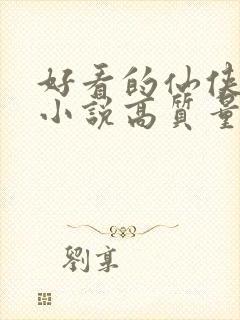 好看的仙侠
小說高質量
劉享